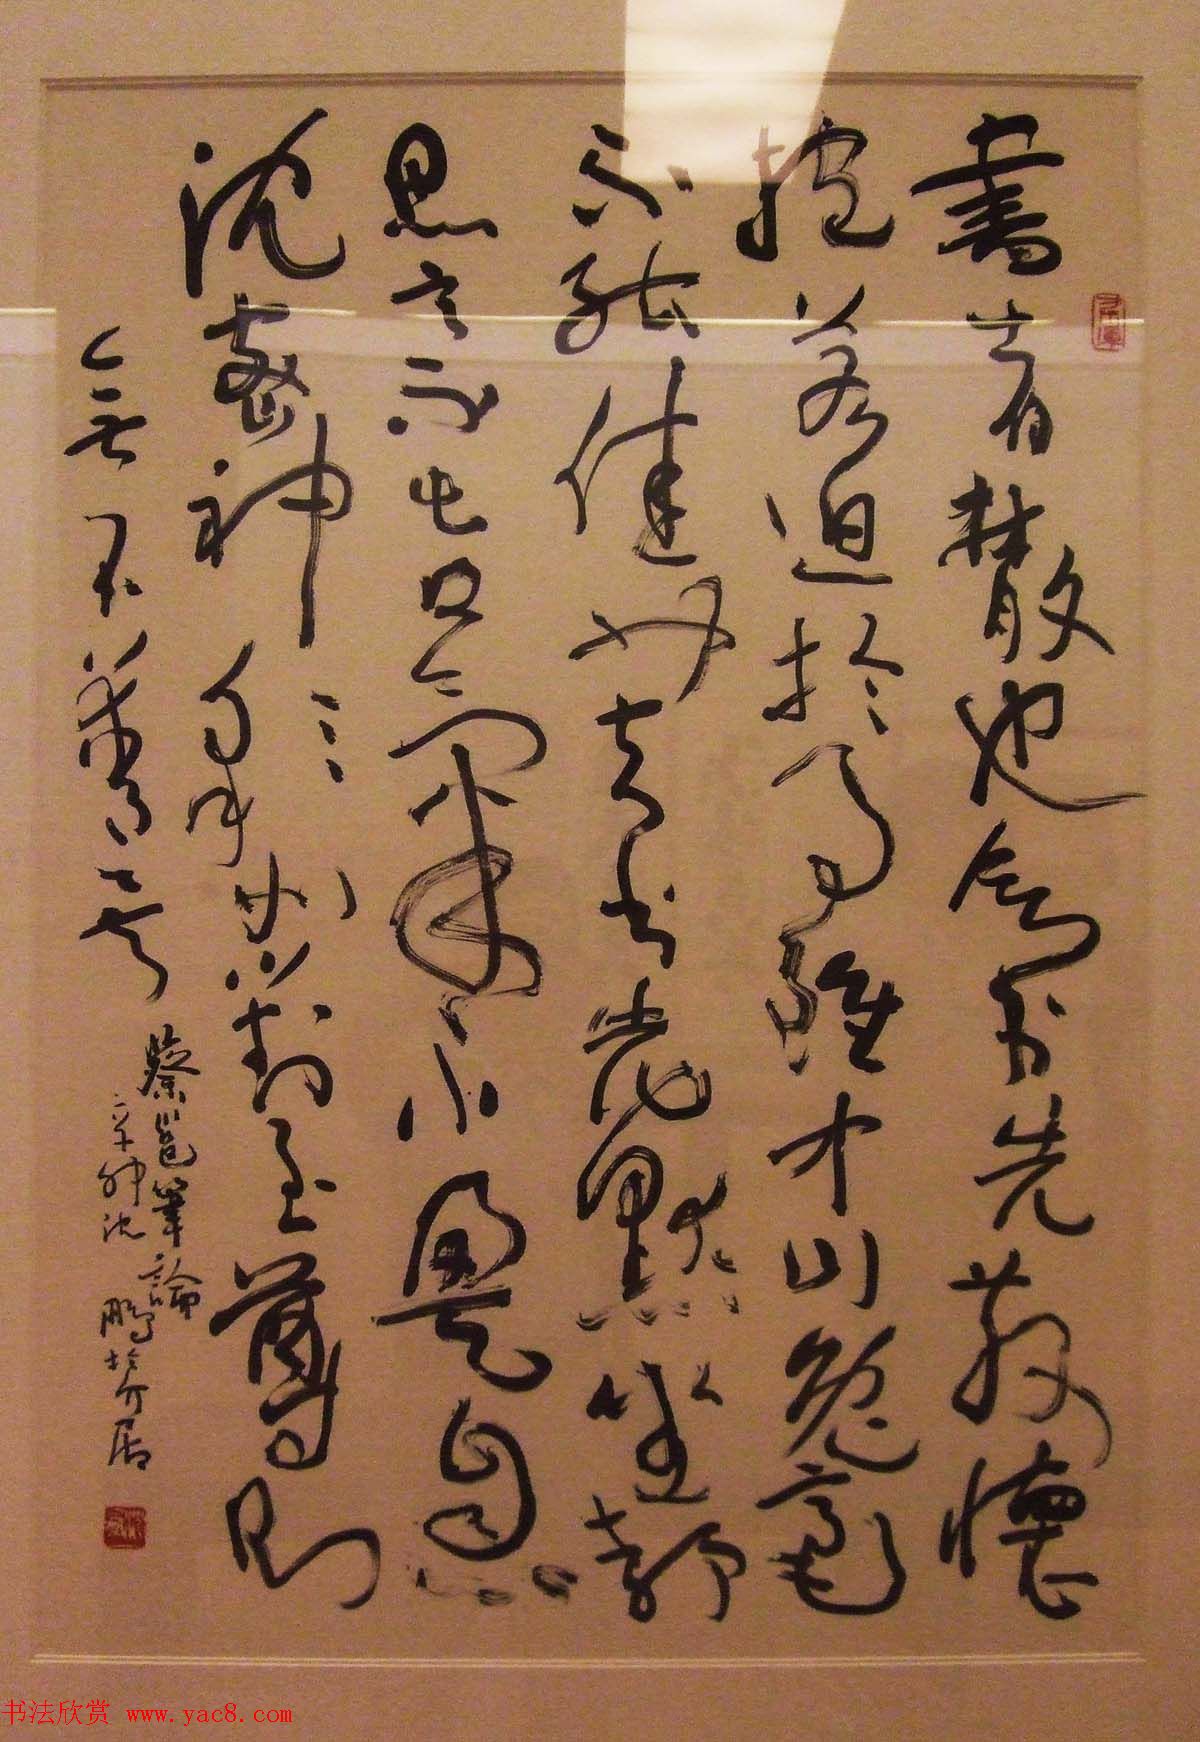 書者散也欲書先散懷
抱若迫於事雖中山兔毫
不能佳也夫書先默坐靜
思言不出口氣不盈息
沈密神彩如對至尊則
無不善矣
蔡邕筆論
辛卯沈鵬於介居
书法欣赏 www.yac8.com